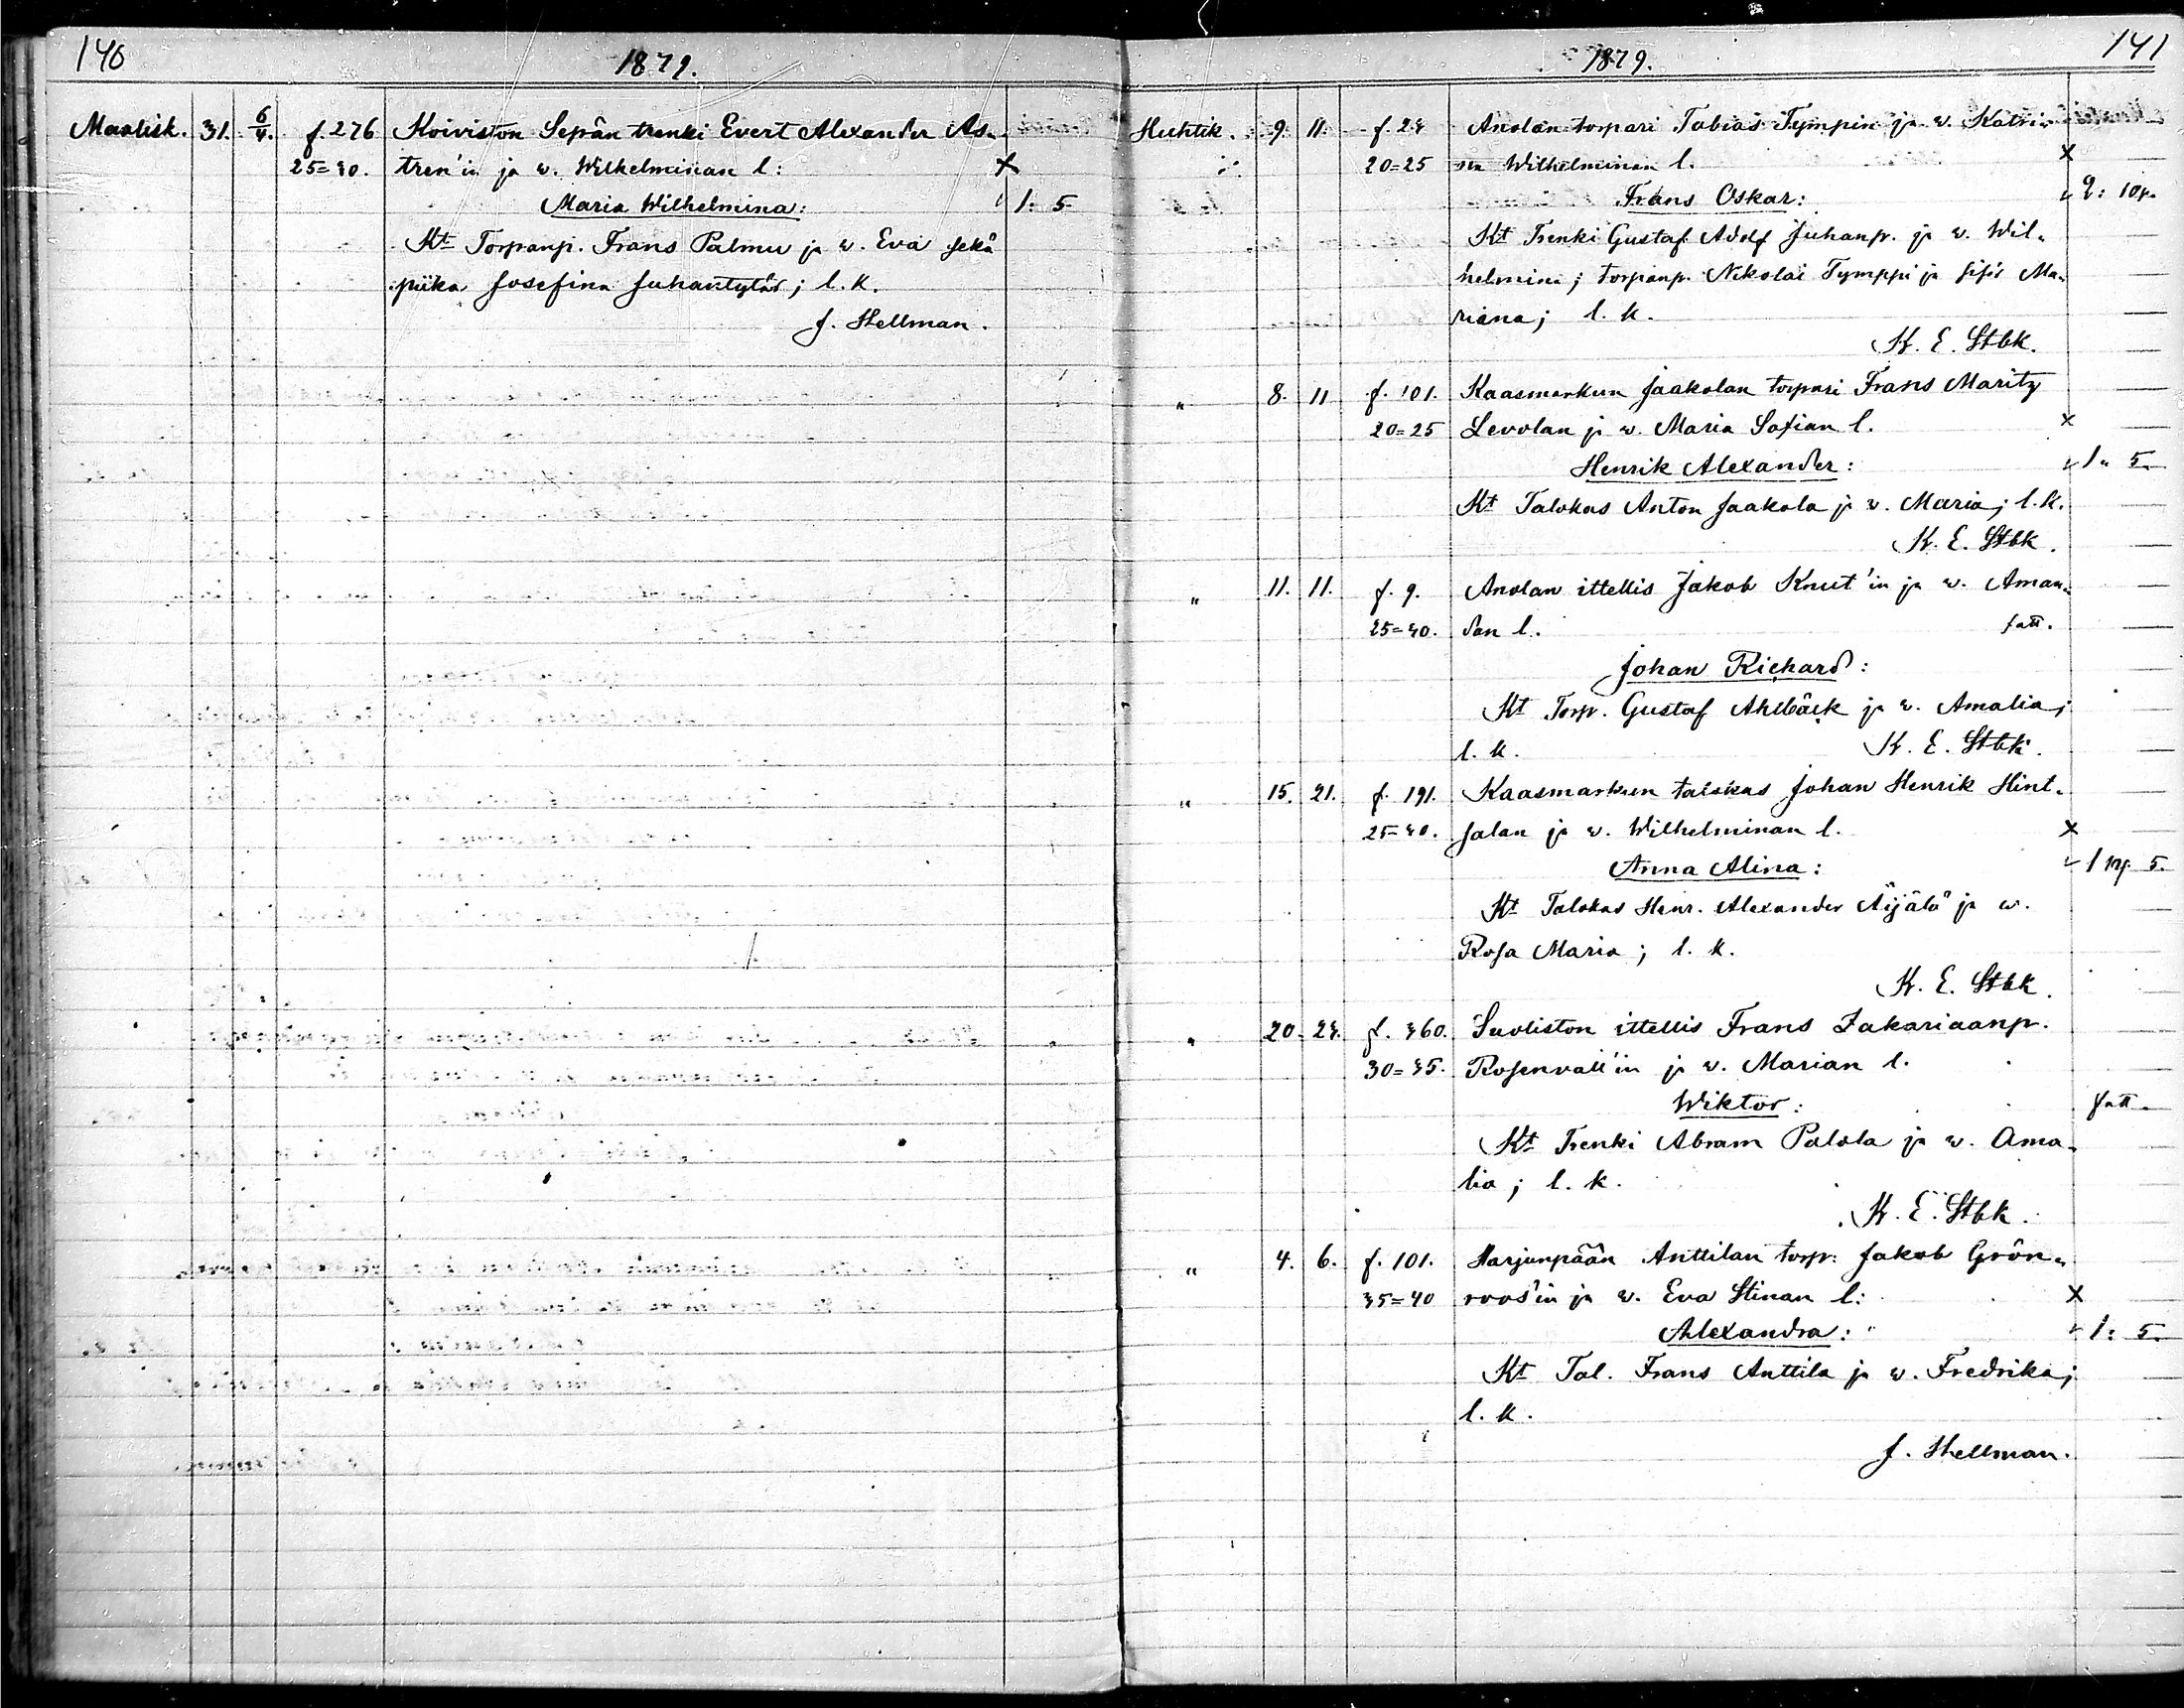 140
1879.
Maalisk. 31. 6/4. f. 276 Koiviston Sepän trenki Evert Alexander As-
25=30. tren'in ja w. Wilhelminan l: X
Maria Wilhelmina: 1: 5
Kt Torpanp. Frans Palmu ja w. Eva sekä
piika Josefina Juhantytär; l. k.
J. Hellman.
1879.
141
Huhtik. 9. 11. f. 24 Anolan torpari Tobias Tympin ja w. Katri-
20=25 na Wilhelminan l. X
Frans Oskar: 2: 10p.
Kt Trenki Gustaf Adolf Juhanp. ja w. Wil-
helmina; torpanp. Nikolai Tymppi ja sisis Ma-
riana; l. k.
K. E. Stbk.
" 8. 11 f. 101. Kaasmarkun Jaakolan torpari Frans Maritz
20=25 Levolan ja w. Maria Sofian l. X
Henrik Alexander: 1" 5
Kt Talokas Anton Jaakola ja w. Maria; l. k.
K. E. Stbk.
" 11. 11. f. 9. Anolan ittellis Jakob Knut'in ja w. Aman-
25=30. dan l. fatt.
Johan Richard:
Kt Torp. Gustaf Ahlbäck ja w. Amalia;
l. k. K. E. Stbk.
" 15. 21. f. 191. Kaasmarkun talokas Johan Henrik Hint-
25=30. salan ja w. Wilhelminan l. X
Anna Alina: 1 5.
Kt Talokas Henr. Alexander Äijälä ja w.
Rosa Maria; l. k.
K. E. Stbk.
" 20. 24. f. 360. Suoliston ittellis Frans Zakariaanp.
30=35. Rosenvall'in ja w. Marian l.
Wiktor: fatt.
Kt Trenki Abram Palola ja w. Ama-
lia; l. k.
K. E. Stbk.
" 4. 6. f. 101. Harjunpään Anttilan torp. Jakob Grön-
35=40 roos'in ja w. Eva Stinan l: X
Alexandra: 1: 5.
Kt Tal. Frans Anttila ja w. Fredrika;
l. k.
J. Hellman.